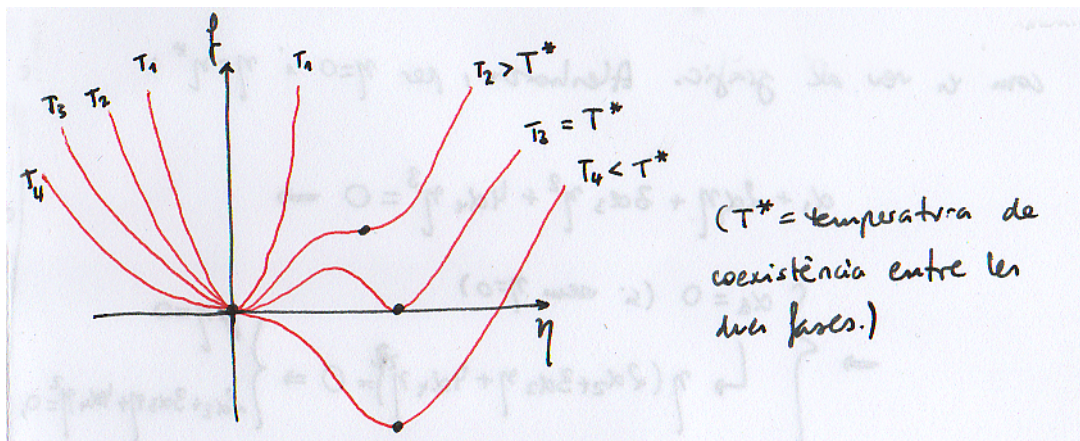 f
T₁
T₁
T₂ > T*
T₃
T₂
T₃ = T*
T₄
T₄ < T*
(T* = temperatura de
coexistència entre les
dues fases.)
η